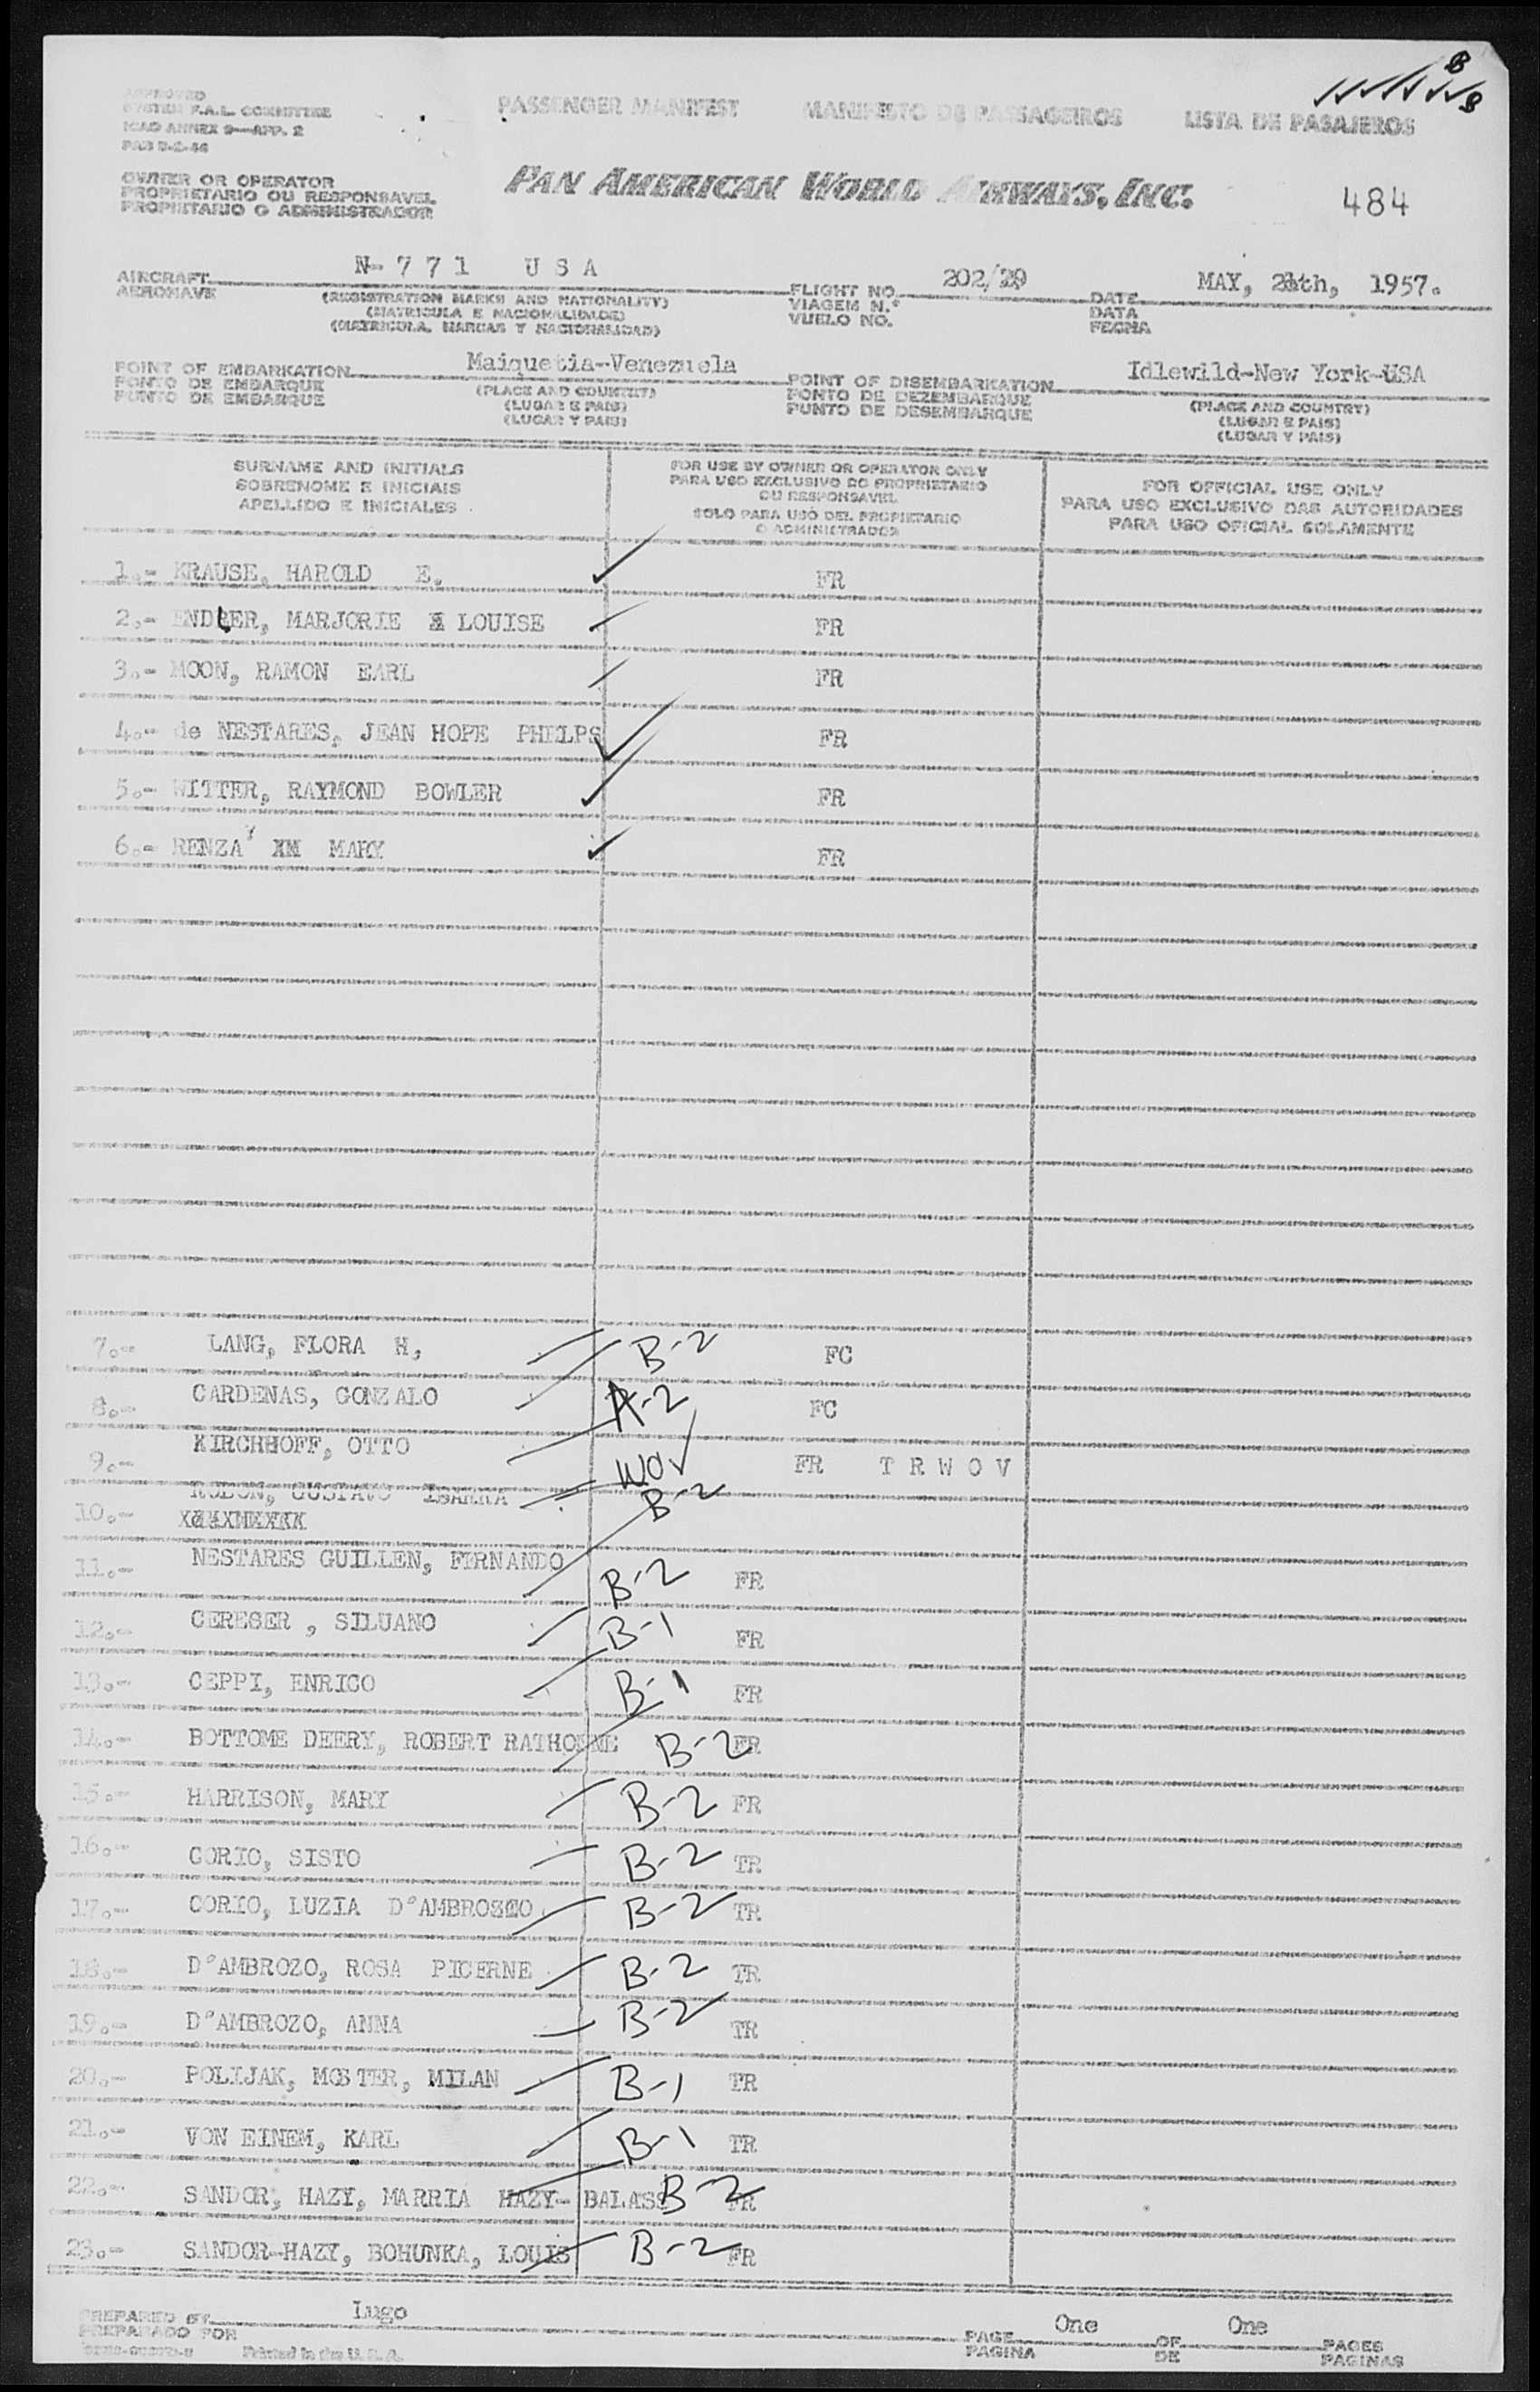 APPROVED
SYSTEM F.A.L. COMMITTEE
ICAO ANNEX 9—APP. 2
PASSENGER MANIFEST MANIFESTO DE PASSAGEIROS LISTA DE PASAJEROS
B
B
OWNER OR OPERATOR
PROPRIETARIO OU RESPONSAVEL
PROPIETARIO O ADMINISTRADOR
PAN AMERICAN WORLD AIRWAYS, INC.
484
AIRCRAFT N-771 USA FLIGHT NO. 202/ DATE MAY, 1957.
AERONAVE (REGISTRATION MARKS AND NATIONALITY) VIAGEM N.° DATA
(MATRICULA E NACIONALIDADE) VUELO NO. FECHA
(MATRICULA, MARCAS Y NACIONALIDAD)
POINT OF EMBARKATION Maiquetia-Venezuela POINT OF DISEMBARKATION Idlewild-New York-USA
PONTO DE EMBARQUE (PLACE AND COUNTRY) PONTO DE DEZEMBARQUE (PLACE AND COUNTRY)
PUNTO DE EMBARQUE (LUGAR E PAIS) PUNTO DE DESEMBARQUE (LUGAR E PAIS)
(LUGAR Y PAIS) (LUGAR Y PAIS)
SURNAME AND INITIALS
SOBRENOME E INICIAIS
APELLIDO E INICIALES
FOR USE BY OWNER OR OPERATOR ONLY
PARA USO EXCLUSIVO DO PROPRIETARIO
OU RESPONSAVEL
SOLO PARA USO DEL PROPIETARIO
O ADMINISTRADOR
FOR OFFICIAL USE ONLY
PARA USO EXCLUSIVO DAS AUTORIDADES
PARA USO OFICIAL SOLAMENTE
1.- KRAUSE, HAROLD E. FR
2.- ENDLER, MARJORIE LOUISE FR
3.- MOON, RAMON EARL FR
4.- de NESTARES, JEAN HOPE PHELPS FR
5.- WITTER, RAYMOND BOWLER FR
6.- RENZA MARY FR
7.- LANG, FLORA H, B-2 FC
8.- CARDENAS, GONZALO A-2 FC
9.- KIRCHHOFF, OTTO WOV FR T R W O V
10.- GUSTAVO IBARRA B-2
11.- NESTARES GUILLEN, FERNANDO B-2 FR
12.- CERESER , SILUANO B-1 FR
13.- CEPPI, ENRICO B-1 FR
14.- BOTTOME DEERY, ROBERT RATHORNE B-2 FR
15.- HARRISON, MARY B-2 FR
16.- CORIO, SISTO B-2 TR
17.- CORIO, LUZIA B-2 TR
18.- D'AMBROZO, ROSA PICERNE B-2 TR
19.- D'AMBROZO, ANNA B-2 TR
20.- POLIJAK, MOSTER, MILAN B-1 TR
21.- VON EINEM, KARL B-1 TR
22.- SANDOR, HAZY, MARRIA HAZY- BALASS B-2 FR
23.- SANDOR-HAZY, BOHUNKA, LOUIS B-2 FR
PREPARED BY Lugo PAGE One OF One PAGES
PREPARADO POR PAGINA DE PAGINAS
Printed in the U.S.A.